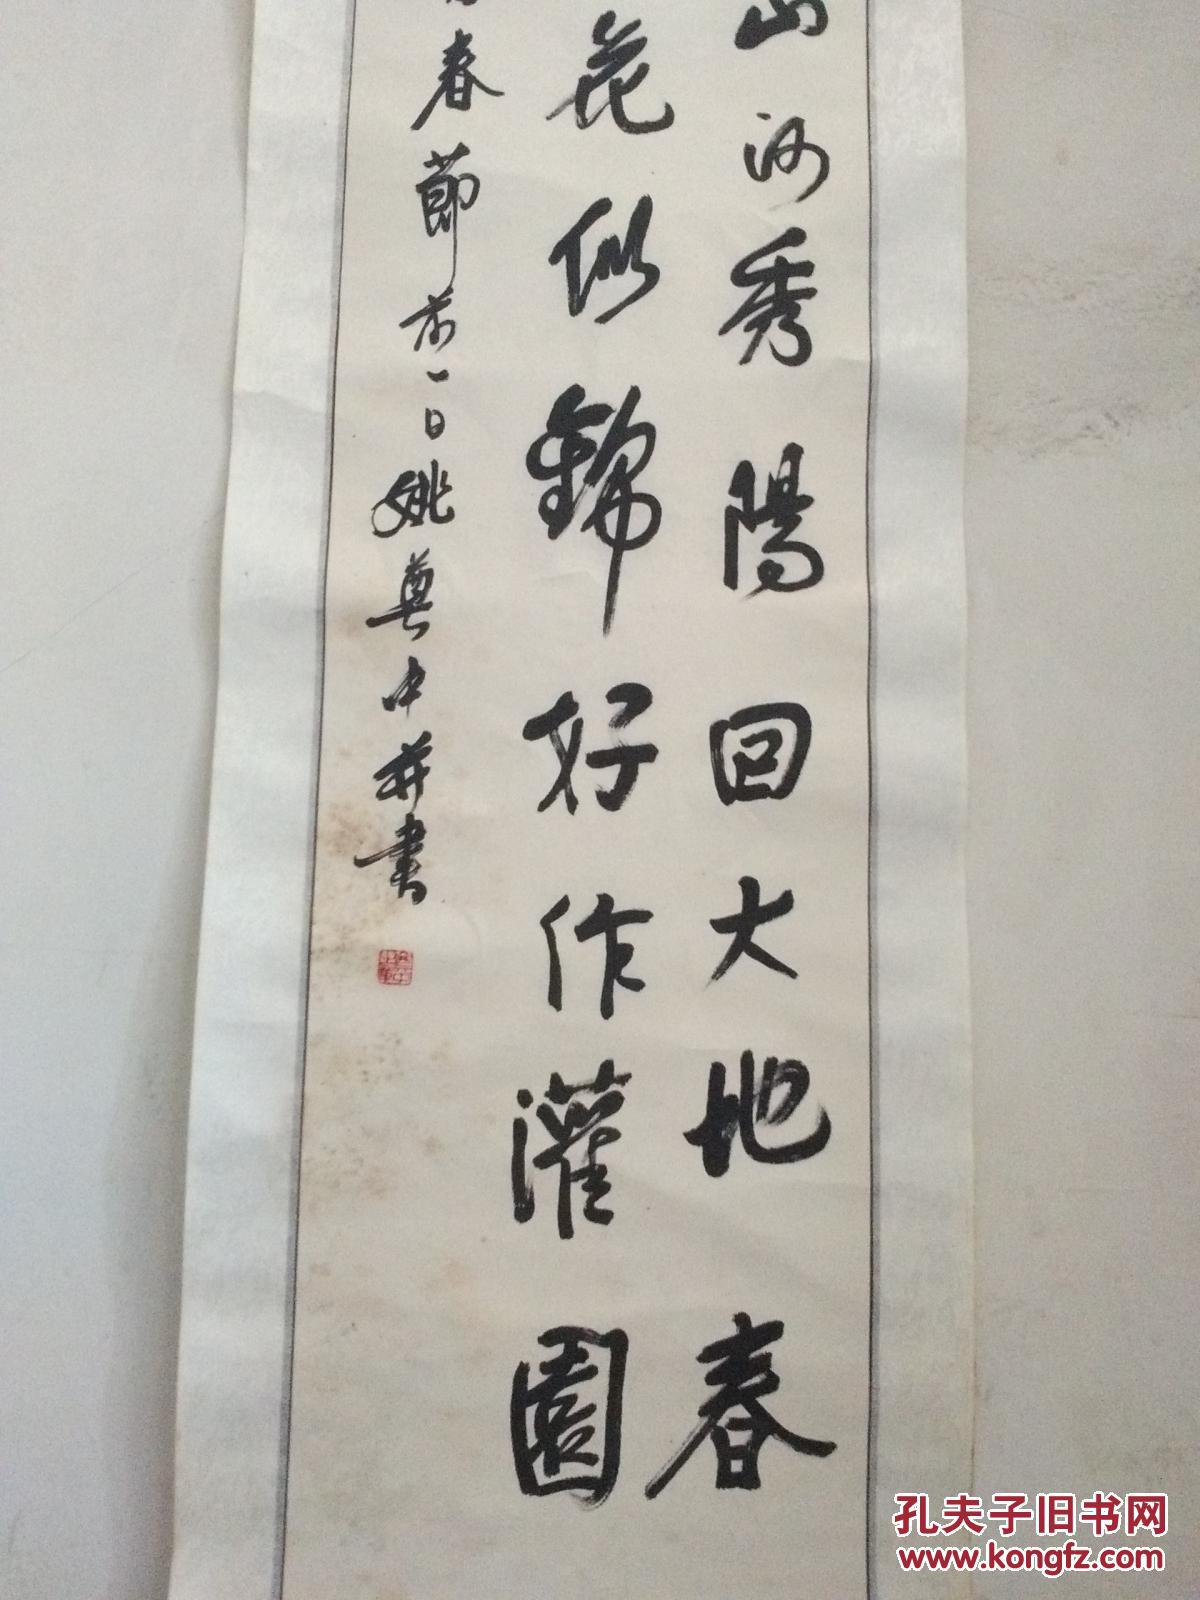 山河秀陽回大地春
花似錦好作灌園
春節前一日姚尊中并書
孔夫子旧书网
www.kongfz.com